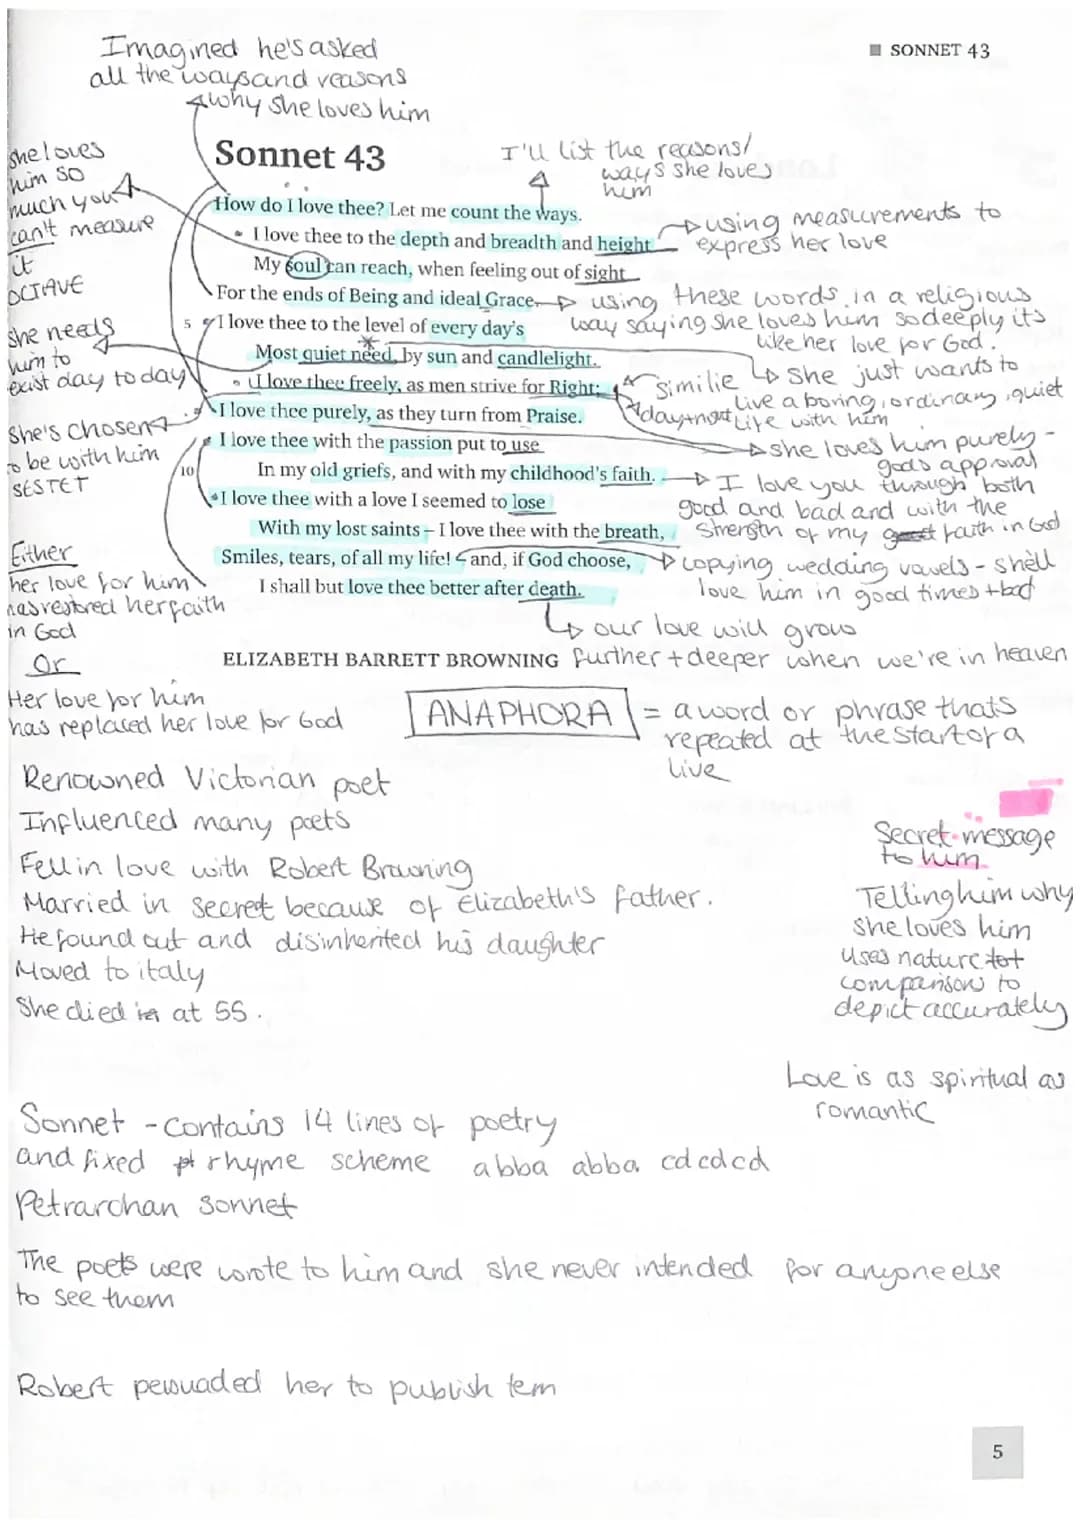 Imagined he's asked
all the ways and reasons
why she loves him
SONNET 43
she loves
him so
much you
can't measure
it
OCTAVE
she needs
him to
exist day to day
she's chosen
to be with him
SESTET
Either
her love for him
has restored her faith
in God
Or
Her love for him
has replaced her love for God
Sonnet 43
I'll list the reasons/
ways she loves
him
How do I love thee? Let me count the ways.
I love thee to the depth and breadth and height
My soul can reach, when feeling out of sight
For the ends of Being and ideal Grace.
5 I love thee to the level of every day's
Most quiet need, by sun and candlelight.
I love thee freely, as men strive for Right;
I love thee purely, as they turn from Praise.
I love thee with the passion put to use
10 In my old griefs, and with my childhood's faith.
I love thee with a love I seemed to lose
With my lost saints – I love thee with the breath,
Smiles, tears, of all my life! – and, if God choose,
I shall but love thee better after death.
ELIZABETH BARRETT BROWNING
using measurements to
express her love
using these words in a religious
way saying she loves him so deeply its
like her love for God.
similie
day+night
she just wants to
live a boring, ordinary, quiet
life with him
she loves him purely -
gods approval
I love you through both
good and bad and with the
strength of my faith in God
copying wedding vowels - shell
love him in good times + bad
our love will grow
further + deeper when we're in heaven
ANAPHORA = a word or phrase thats
repeated at the start of a
live
Renowned Victorian poet
Influenced many poets
Fell in love with Robert Browning
Married in secret because of Elizabeth's father.
He found out and disinherited his daughter
Moved to italy
She died in at 55.
Secret message
to him
Telling him why
she loves him
uses nature tot
comparisons to
depict accurately
Love is as spiritual as
romantic
Sonnet - contains 14 lines of poetry
and fixed rhyme scheme abba abba cdcdcd
Petrarchan sonnet
The poets were wrote to him and she never intended for anyone else
to see them
Robert persuaded her to publish tem
5